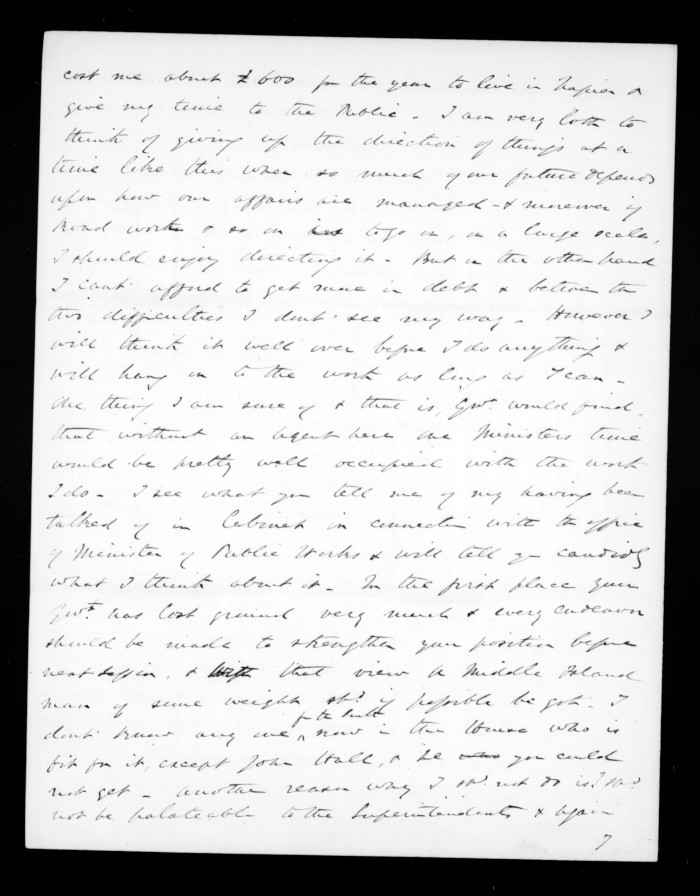 cost me about £600 for the year to live in Napier &
give my time to the Public - I am very loth to
think of giving up the direction of things at a
time like this when so much of our future depends
upon how our affairs are managed - & moreover if
Road works & so on to go on, on a large scale,
I should enjoy directing it - But on the other hand
I cant afford to get more in debt & between the
two difficulties I dont see my way - However I
will think it well over before I do anything &
will hang on to the work as long as I can -
One thing I am sure of & that is, Govt. would find,
that without an Agent here one Ministers time
would be pretty well occupied with the work
I do - I see what you tell me of my having been
talked of in Cabinet in connection with the office
of Minister of Public Works & will tell you candidly
what I think about it - In the first place your
Govt. has lost ground very much & every endeavor
should be made to strengthen your position before
next Session, & with that view a Middle Island
man of some weight shd. if possible be got - I
dont know any one now in the House who is
fit for it, except John Hall, & he you could
not get - another reason why I shd. not do is I shd.
not be palateable to the Superintendents & again
7